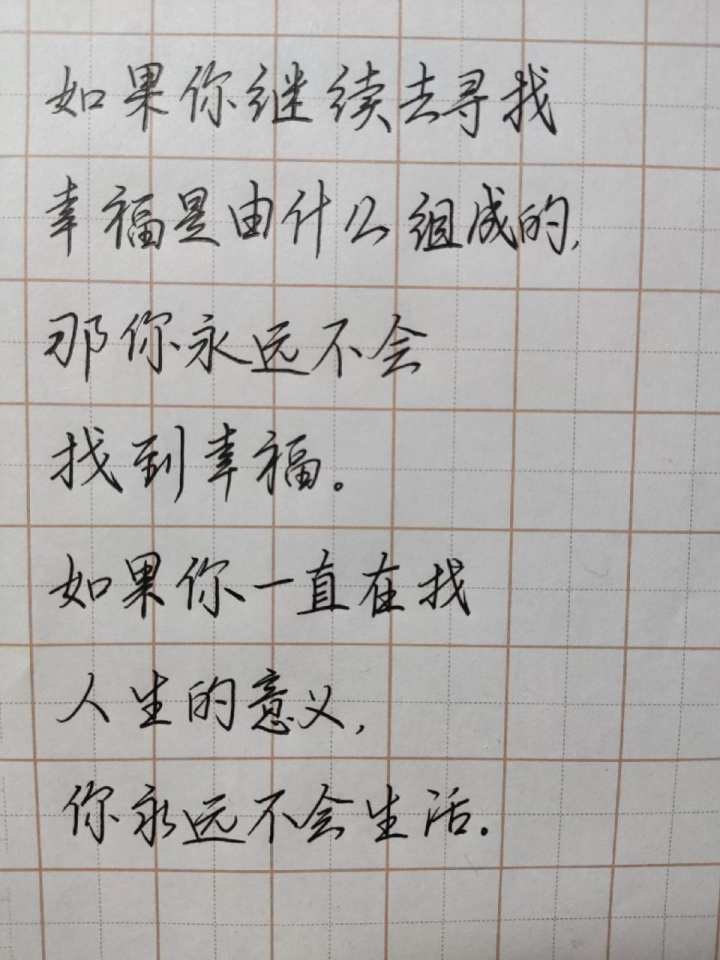 如果你继续去寻找
幸福是由什么组成的,
那你永远不会
找到幸福。
如果你一直在找
人生的意义,
你永远不会生活.